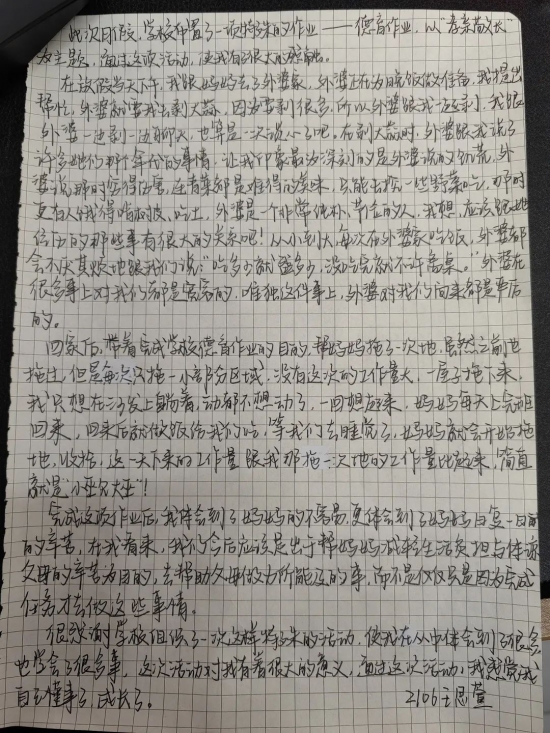 此次日作文,学校布置了一项特殊的作业——德育作业,以"孝亲敬长"
为主题,通过这项活动,使我有了很大的感触。
在放假当天下午,我跟妈妈去了外婆家,外婆正在为晚饭做准备,我提出
帮忙,外婆就要我去剥大蒜,因为要剥很多,所以外婆跟我一起剥,我跟
外婆一边剥一边聊天,也算是一次谈心了吧,在剥大蒜时,外婆跟我说了
许多她们那个年代的事情,让我印象最为深刻的是外婆说的饥荒,外
婆说那时穷得厉害,连青菜都是难得的美味,只能去挖一些野菜吃,那时
更有人饿得啃树皮、吃土,外婆是一个非常纯朴、节俭的人,我想,应该跟她
经历的那些事有很大的关系吧!从小到大,每次在外婆家吃饭,外婆都
会不厌其烦地跟我们说:"吃多少就盛多少,没吃完就不许离桌。"外婆在
很多事上对我们都是宽容的,唯独这件事上,外婆对我们向来都是严厉
的。
回家后,带着完成学校德育作业的目的,帮妈妈拖了一次地,虽然之前也
拖过,但是每次只拖一小部分区域,没有这次的工作量大,一屋子拖下来,
我只想在沙发上躺着,动都不想动了,一回想起来,妈妈每天上完班
回来,回来后就做饭给我们吃,等我们去睡觉了,妈妈就会开始拖
地,收拾,这一天下来的工作量跟我那拖一次地的工作量比起来,简直
就是"小巫见大巫"!
完成这项作业后,我体会到了妈妈的不容易,更体会到了妈妈日复一日的
的辛苦,在我看来,我们今后应该是出于帮妈妈减轻生活负担与体谅
父母的辛苦为目的,去帮助父母做力所能及的事,而不是仅仅只是因为完成
任务才去做这些事情。
很感谢学校组织了一次这样特殊的活动,使我在从中体会到了很多,
也学会了很多事,这次活动对我有着很大的意义,通过这次活动,我感觉我
自己懂事了,成长了。 2106王思萱